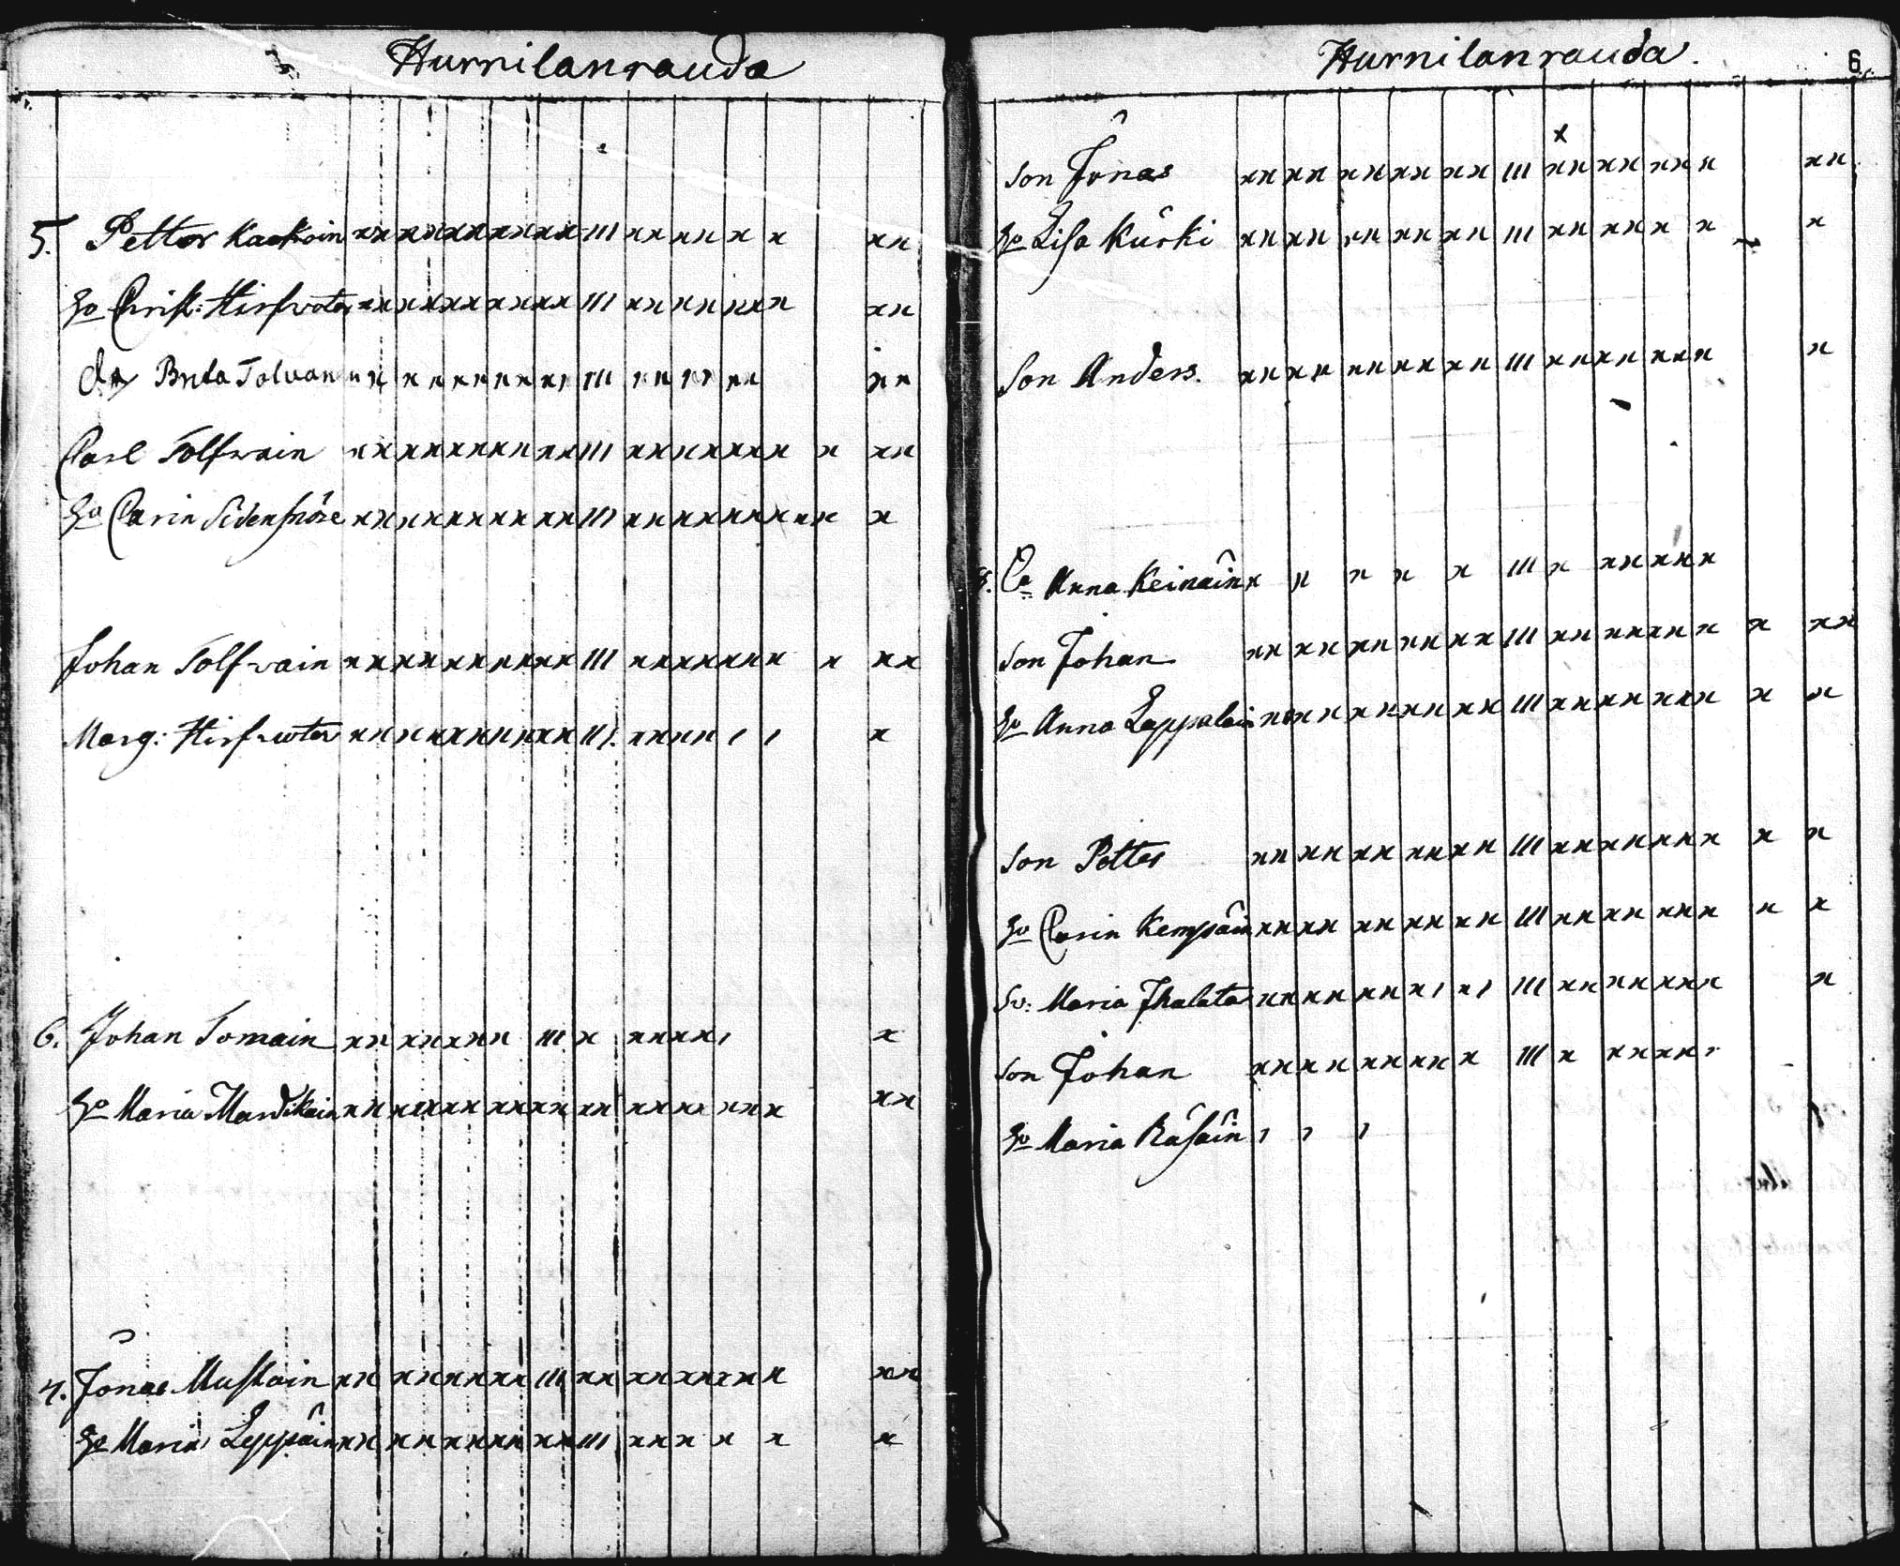 Hurnilanrauda
5. Petter Kackoin xx xx xx xx xx III xx xx x x xx
Ho Christ: Hirfwoter xx xx xx xx xx III xx xx xx x xx
dr Brita Tolvan xx xx xx xx xx III xx xx xx xx
Carl Tolfwain xx xx xx xx xx III xx xx xx x x xx
Ho Carin Sidensnöre xx xx xx xx xx III xx xx xx x xx x
Johan Tolfwain xx xx xx xx xx III xx xx xx x x xx
Marg: Hirfwoter xx xx xx xx xx III xx xx ı ı x
6. Johan Tomain xx xx xx x III x xx xx ı x
Ho Maria Mardikain xx xx xx xx xx xx xx xx xx x xx
7. Jonas Mustoin xx xx xx xx III xx xx xx xx xx
Ho Maria Leppäin xx xx xx xx xx III xx x x x x
Hurnilanrauda. 6
x
Son Jonas xx xx xx xx xx III xx xx xx x xx
Ho Lisa Kurki xx xx xx xx xx III xx xx x x x
Son Anders. xx xx xx xx xx III xx xx xx x x
8. Ca Anna Keinäin x x x x x III x xx xx x
Son Johan xx xx xx xx xx III xx xx xx x x xx
Ho Anna Lappalain xx xx xx xx xx III xx xx xx x x x
Son Petter xx xx xx xx xx III xx xx xx x x x
Ho Carin Kempäin xx xx xx xx xx III xx xx xx x x x
Sv: Maria Ihalata xx xx xx xı xı III xx xx xx x x
Son Johan xx xx xx xx x III x xx xx ı
Ho Maria Räsäin ı ı ı